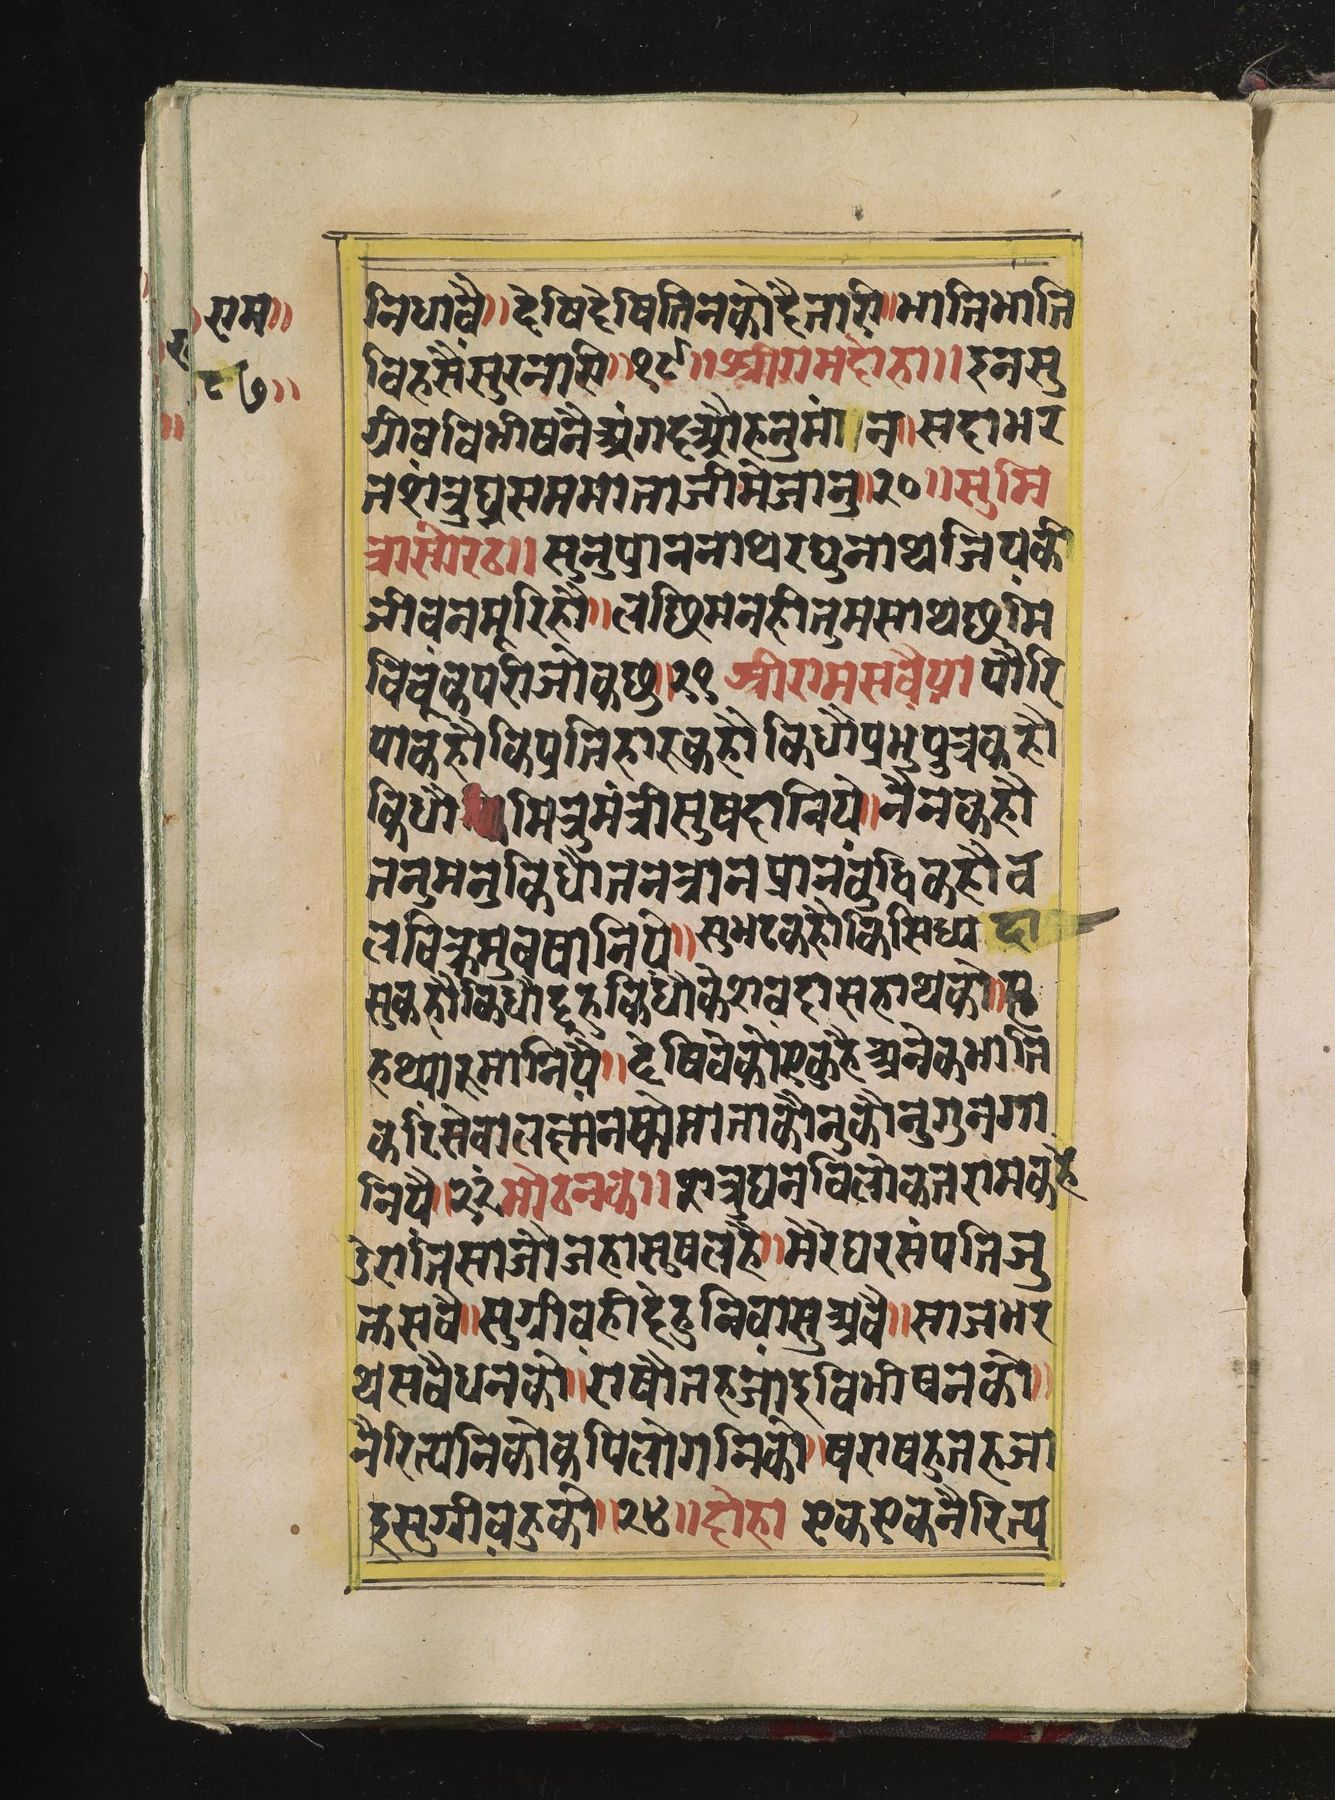 राम॥
८७॥
निधावै॥देषिदेषितिनकोदैतारी॥भातिभाति
विहसैसुरनारी॥१९॥श्रीरामदोहा॥इनसु
ग्रीवविभीषनैअंगदऔहनुमांन॥सदाभर
तशत्रुघ्रसममाताजीमैजानु॥२०॥सुमि
त्रासोरठा॥सुनुप्राननाथरघुनाथजियकी
जीवनमूरिहौ॥लछिमनहीतुमसाथछमि
विवूकपरीजोकछु॥२१ श्रीरामसवैया पौरि
याकहौकिप्रतिहारकहौकिधौप्रभुपुत्रकहौ
किधौ मित्रुमंत्रीसुषदानिये॥नैनकहौ
तनुमनुकिधौतनत्रानप्रानबुधिकहौव
लविक्रमुवषानिये॥सुभटकहौकिसिष्य दा
सुकहौकिधौदूतुकिधौकेशवदासहाथको॥ए
हथ्यारुमानियै॥देषिवेकोएकुहैअनेकभाति
करिसेवालक्ष्मनमोमाताकौनुकौनुगुनगा
नियै॥२२मोटनक॥शत्रुघनविलोकतरामकहै
डेरातिसाजौजहासुषलहै॥मेरेघरसंपतिजु
क्तसवै॥सुग्रीवहीदेहुनिवासुअवै॥साजभर
थसवैधनको॥राषौतहजाइविभीषनको॥
नैरित्यनिकोकपिलोगनिको॥षराषहुतहजा
इसुग्रीवहुको॥२४॥दोहा एकएकनैरित्य